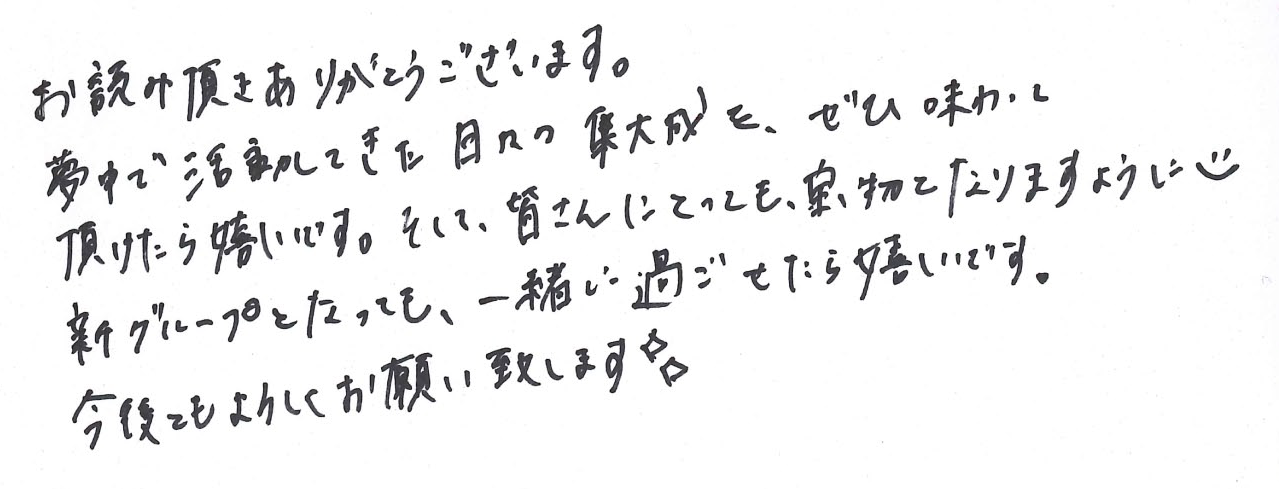 お読み頂きありがとうございます。
夢中で活動してきた日々の集大成を、ぜひ味わって
頂けたら嬉しいです。そして、皆さんにとっても、宝物となりますように
新グループとなっても、一緒に過ごせたら嬉しいです。
今後ともよろしくお願い致します